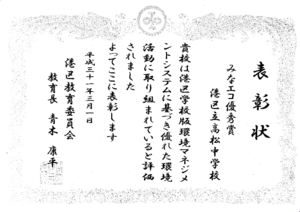 表彰状
みなエコ優秀賞
港区立高松中学校
貴校は港区学校版環境マネジメ
ントシステムに基づき優れた環境
活動に取り組まれていると評価
されました
よってここに表彰します
平成三十一年三月一日
港区教育委員会
教育長 青木 康平